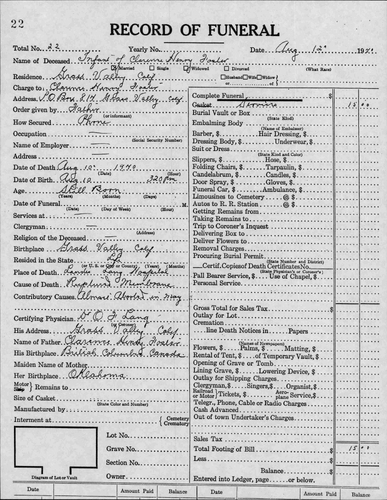 22
RECORD OF FUNERAL
Total No. 22 Yearly No. Date Aug 12 1940
Name of Deceased Infant of Clarence Henry Foster
Married Single Widowed Divorced (What Race)
Residence Grass Valley Calif Husband Wife Widow
Charge to Clarence Henry Foster
Address P.O. Box 817 Grass Valley, Calif
Order given by Father
(or informant)
How Secured Phone
Occupation
(Social Security Number)
Name of Employer
Address
Date of Death Aug 10 1940
Date of Birth Aug 10 320 PM
Age Still Born
Date of Funeral M.
(Date) (Day of Week) (Hour)
Services at
Clergyman
Religion of the Deceased
Birthplace Grass Valley Calif
Resided in the State
Place of Death Hospital
Cause of Death Membrane
Contributory Causes Almost Aborted in May
Certifying Physician Lang
His Address Grass Valley Calif
Name of Father Clarence Henry Foster
His Birthplace British Columbia Canada
Maiden Name of Mother
Her Birthplace Oklahoma
Motor Remains to
Size of Casket
(State Color and Number)
Manufactured by
Interment at Cemetery
Crematory
Lot No.
Grave No.
Section No.
Owner
Diagram of Lot or Vault
Date Amount Paid Balance
Complete Funeral
Casket Services 15 00
Burial Vault or Box
(State Kind)
Embalming Body
(Name of Embalmer)
Barber, $ Hair Dressing, $
Dressing Body, $ Underwear, $
Suit or Dress
(State Kind and Color)
Slippers, $ Hose, $
Folding Chairs, $ Tarpaulin, $
Candelabrum, $ Candles, $
Door Spray, $ Gloves, $
Funeral Car, $ Ambulance, $
Limousines to Cemetery @ $
Autos to R. R. Station @ $
Getting Remains from
Taking Remains to
Trip to Coroner's Inquest
Delivering Box to
Deliver Flowers to
Removal Charges
Procuring Burial Permit
(State Number and District)
Certif. Copies of Death Certificates No.
(State Physician's or Coroner's)
Pall Bearer Service, $ Use of Chapel, $
Personal Service
Gross Total for Sales Tax
Outlay for Lot
Cremation
line Death Notices in Papers
(Names of Newspapers)
Flowers, $ Palms, $ Matting, $
Rental of Tent, $ of Temporary Vault, $
Opening of Grave or Tomb
Lining Grave, $ Lowering Device, $
Outlay for Shipping Charges
Clergyman, $ Singers, $ Organist, $
Tickets, $ Service, $
Telegr., Phone, Cable or Radio Charges
Cash Advanced
Out of town Undertaker's Charges
Sales Tax
Total Footing of Bill 15 00
Less
Balance
Entered into Ledger, page or below.
Date Amount Paid Balance